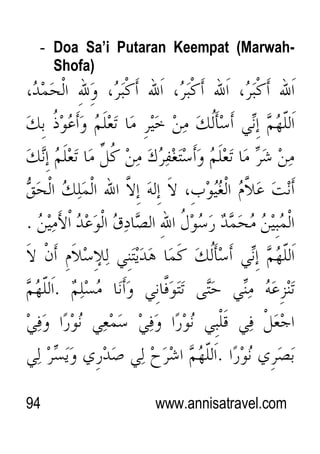 - Doa Sa’i Putaran Keempat (Marwah-
Shofa)
اَللهُ أَكْبَرُ، اَللهُ أَكْبَرُ، اَللهُ أَكْبَرُ، وَلِلّٰهِ الْحَمْدُ،
اَللّٰهُمَّ إِنِّي أَسْأَلُكَ مِنْ خَيْرِ مَا تَعْلَمُ وَأَعُوْذُ بِكَ
مِنْ شَرِّ مَا تَعْلَمُ وَأَسْتَغْفِرُكَ مِنْ كُلِّ مَا تَعْلَمُ إِنَّكَ
أَنْتَ عَلاَّمُ الْغُيُوْبِ، لاَ إِلهَ إِلاَّ الله الْمَلِكُ الْحَقُّ
الْمُبِيْنُ مُحَمَّدٌ رَسُوْلُ اللهِ الصَّادِقُ الْوَعْدُ الْأَمِيْنُ .
اَللّٰهُمَّ إِنِّي أَسْأَلُكَ كَمَا هَدَيْتَنِي لِلإِسْلاَمِ أَنْ لاَ
تَنْزِعَهُ مِنِّي حَتَّى تَتَوَفَّانِي وَأَنَا مُسْلِمٌ .اَللّٰهُمَّ
اجْعَلْ فِي قَلْبِي نُوْرًا وَفِيْ سَمْعِي نُوْرًا وَفِيْ
بَصَرِي نُوْرًا .اَللّٰهُمَّ اشْرَحْ لِي صَدْرِي وَيَسِّرْ لِي
94 www.annisatravel.com